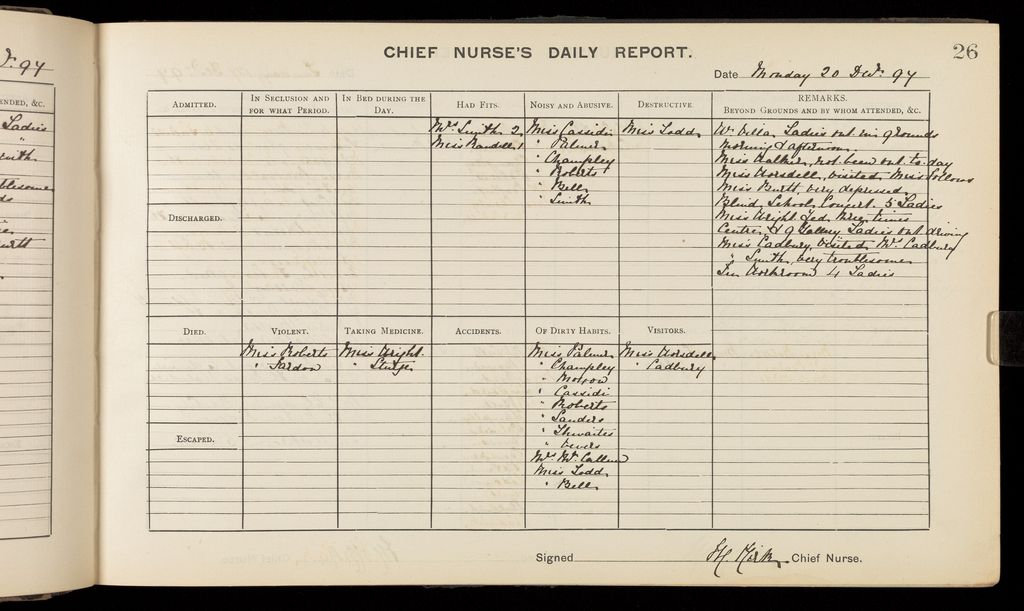 r. 97
ENDED, &C.
Ladies
CHIEF NURSE'S DAILY REPORT.
26
Date Monday 20 Decr. 97
ADMITTED.
IN SECLUSION AND FOR WHAT PERIOD.
IN BED DURING THE DAY.
HAD FITS.
NOISY AND ABUSIVE.
DESTRUCTIVE.
REMARKS.
BEYOND GROUNDS AND BY WHOM ATTENDED, &C.
Mrs Smith 2
Miss Randell 1
Miss Cassidi
" Palmer
" Champley
" Roberts
" Bell
" Smith
Miss Todd
W. Villa Ladies out in grounds
morning & afternoon.
Miss Walker, not been out to-day
Miss Worsdell, visited Miss Follows
Miss Burtt, very depressed
Blind School Concert 5 Ladies
Miss Wright fed three times
Centre & Gallery Ladies out driving
Miss Cadbury, visited Mr. Cadbury
" Smith, very troublesome
In Workroom 4 Ladies
DISCHARGED.
DIED.
VIOLENT.
TAKING MEDICINE.
ACCIDENTS.
OF DIRTY HABITS.
VISITORS.
Miss Roberts
Miss Wright
" Sturge
Miss Palmer
" Champley
" Morrow
" Cassidi
" Roberts
" Sanders
" Thwaites
Mrs Mc Callum
Miss Todd
" Bell
Miss Worsdell
" Cadbury
ESCAPED.
Signed H. Kirk Chief Nurse.